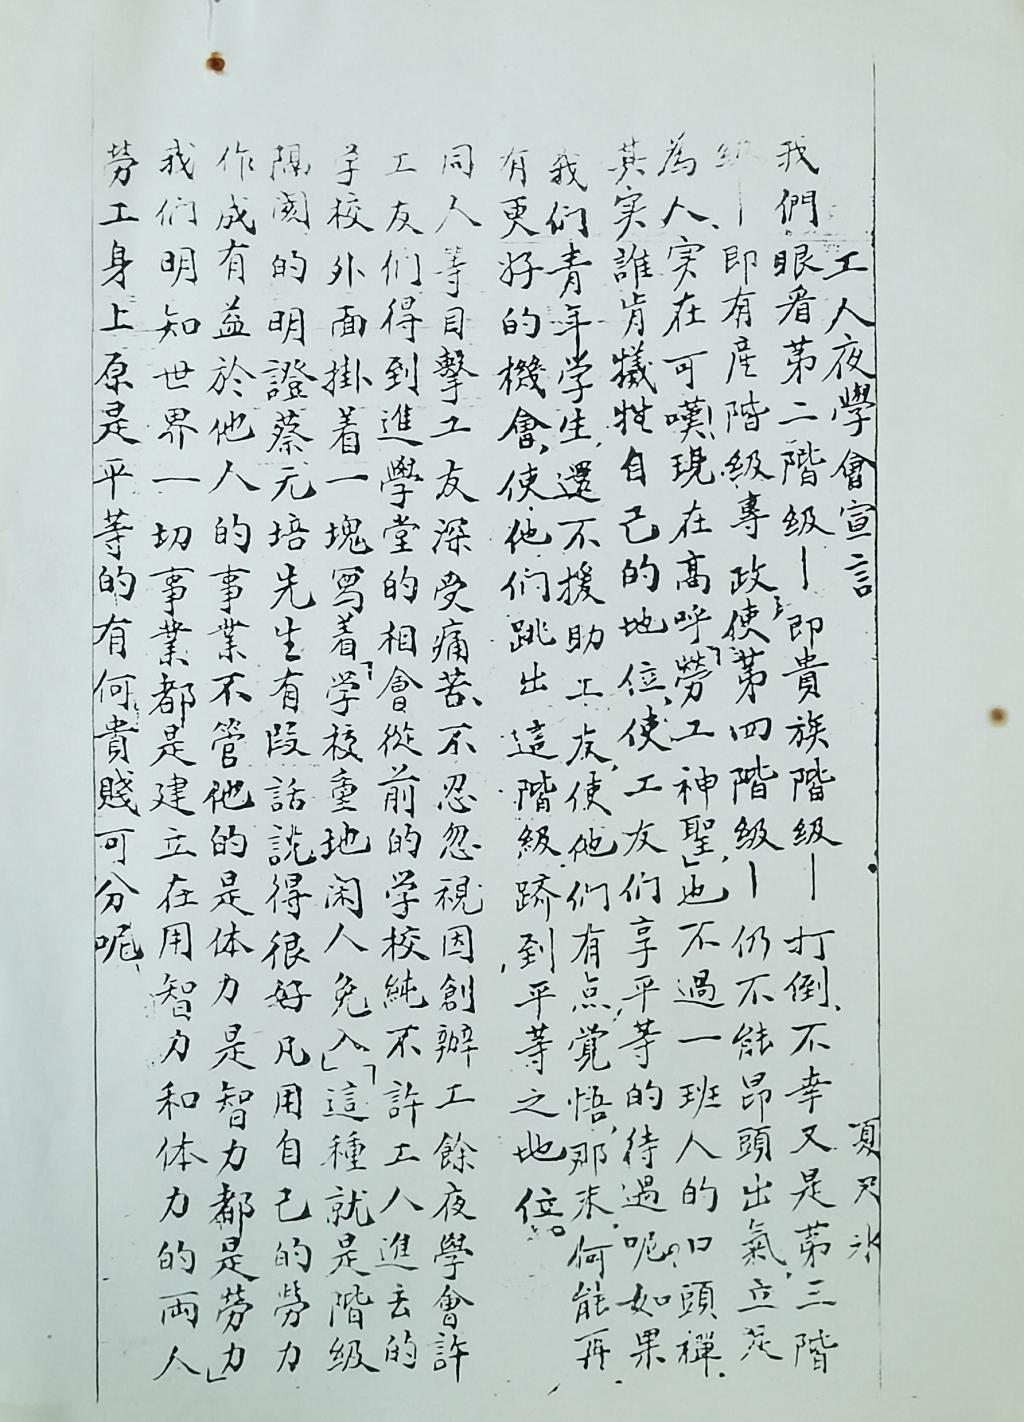 工人夜學會宣言
夏尺冰
我們眼看苐二階级—即貴族階级—打倒、不幸又是苐三階
级—即有産階级、專政、使苐四階级—仍不能昂頭出氣、立足
為人、实在可嘆!現在高呼「勞工神聖」、也不過一班人的口頭禪.
其实誰肯犠牲自己的地位、使工友们享平等的待過呢。如果
我们青年学生、還不援助工友、使他们有点覚悟、那末、何能再
有更好的機會、使他们跳出這階級、跻到平等之地位。
同人等目擊工友深受痛苦、不忍忽視因創辦工餘夜學會許
工友们得到進學堂的相會從前的学校純不許工人進去的
学校外面掛着一塊写着「学校重地闲人免入」「這種就是階级
隔阂的明證蔡元培先生有段話説得很好凡用自己的勞力
作成有益於他人的事業不管他的是体力是智力都是勞力」
我们明知世界一切事業都是建立在用智力和体力的両人
勞工身上原是平等的有何貴賤可分呢、